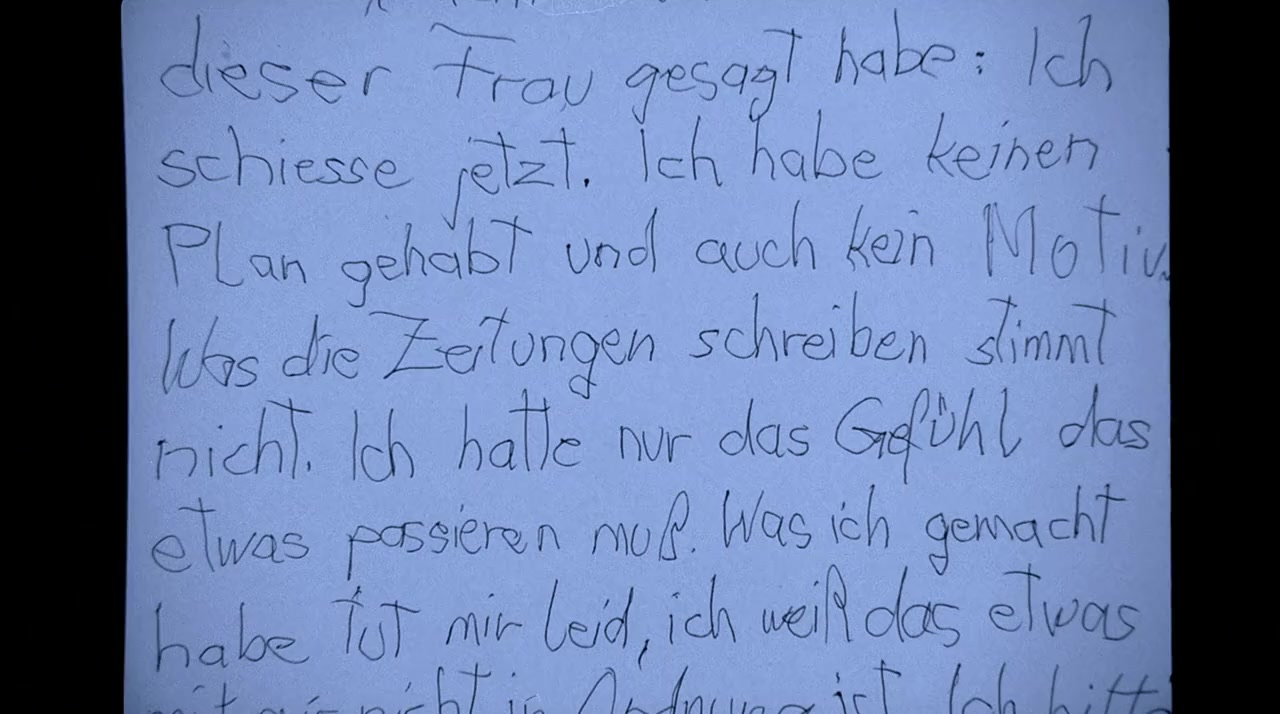 dieser Frau gesagt habe: Ich
schiesse jetzt. Ich habe keinen
Plan gehabt und auch kein Motiv.
Was die Zeitungen schreiben stimmt
nicht. Ich hatte nur das Gefühl das
etwas passieren muß. Was ich gemacht
habe tut mir leid, ich weiß das etwas
mit mir nicht in Ordnung ist. Ich bitte